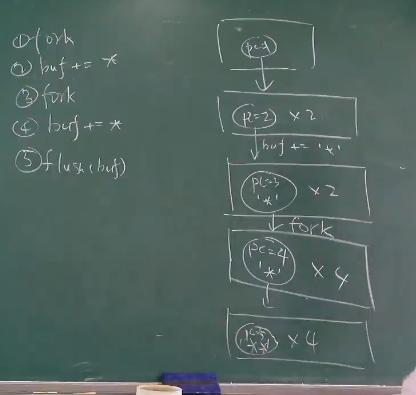 ① fork
② buf += *
③ fork
④ buf += *
⑤ flush(buf)
pc=1
pc=2 ×2
buf += '*'
pc=3 ×2
'*'
fork
pc=4
'*' ×4
pc=5 ×4
'**'